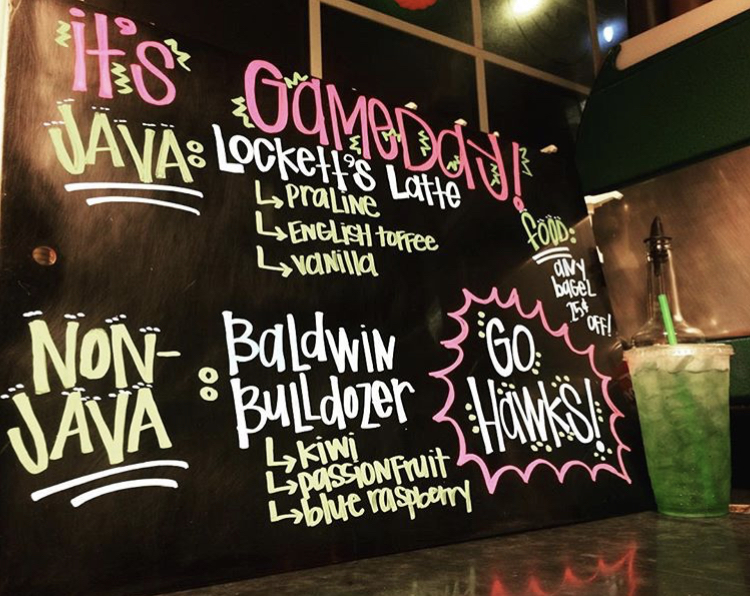 it's
GaMeDay!
JAVA:
Lockett's Latte
praline
ENGLISH toffee
vanilla
FOOD:
any
bagel
75¢
OFF!
NON-
JAVA:
BaLdwiN
BuLLdozer
kiwi
passionfruit
blue raspberry
GO
HawKS!